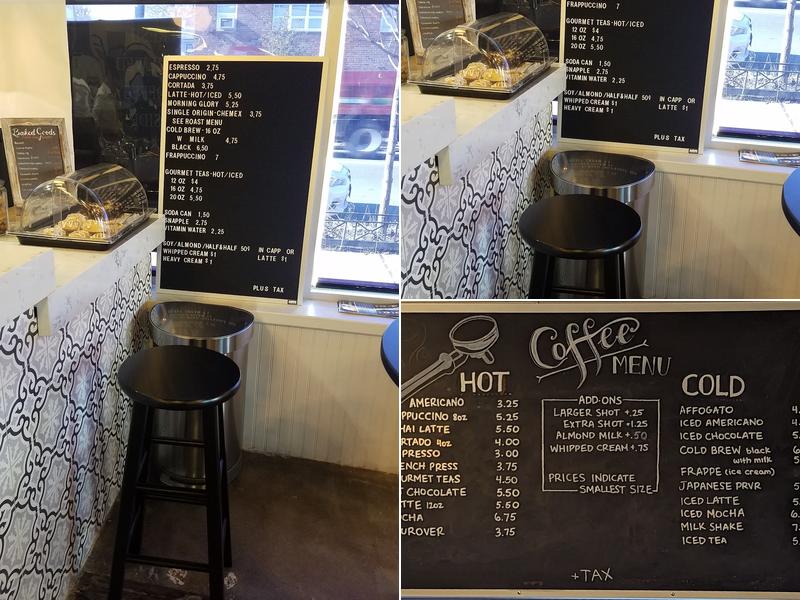 Baked Goods
ESPRESSO 2,75
CAPPUCCINO 4,75
CORTADA 3,75
LATTE-HOT/ICED 5,50
MORNING GLORY 5,25
SINGLE ORIGIN-CHEMEX 3,75
SEE ROAST MENU
COLD BREW-16 OZ
W MILK 4,75
BLACK 6,50
FRAPPUCCINO 7
GOURMET TEAS-HOT/ICED
12 OZ $4
16 OZ 4,75
20 OZ 5,50
SODA CAN 1,50
SNAPPLE 2,75
VITAMIN WATER 2,25
SOY/ALMOND/HALF&HALF 50¢ IN CAPP OR
WHIPPED CREAM $1 LATTE $1
HEAVY CREAM $1
PLUS TAX
FRAPPUCCINO 7
GOURMET TEAS-HOT/ICED
12 OZ $4
16 OZ 4,75
20 OZ 5,50
SODA CAN 1,50
SNAPPLE 2,75
VITAMIN WATER 2,25
SOY/ALMOND/HALF&HALF 50¢ IN CAPP OR
WHIPPED CREAM $1 LATTE $1
HEAVY CREAM $1
PLUS TAX
Coffee
MENU
HOT
AMERICANO 3.25
PPUCCINO 8oz 5.25
HAI LATTE 5.50
RTADO 4oz 4.00
PRESSO 3.00
ENCH PRESS 3.75
URMET TEAS 4.50
T CHOCOLATE 5.50
TTE 12oz 5.50
CHA 6.75
UROVER 3.75
ADD-ONS
LARGER SHOT +.25
EXTRA SHOT +1.25
ALMOND MILK +.50
WHIPPED CREAM +.75
PRICES INDICATE
SMALLEST SIZE
COLD
AFFOGATO 4.
ICED AMERICANO 4.
ICED CHOCOLATE 5.
COLD BREW black 6
with milk 5
FRAPPE (ice cream)
JAPANESE PRVR 5
ICED LATTE 5.
ICED MOCHA 6.
MILK SHAKE 7.
ICED TEA 5.
+TAX